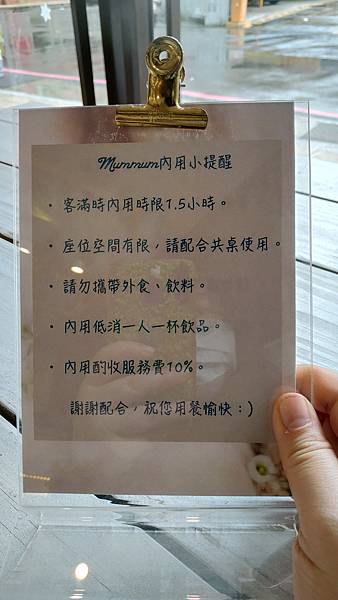 Mummum內用小提醒
・客滿時內用時限1.5小時。
・座位空間有限，請配合共桌使用。
・請勿攜帶外食、飲料。
・內用低消一人一杯飲品。
・內用酌收服務費10%。
謝謝配合，祝您用餐愉快：)